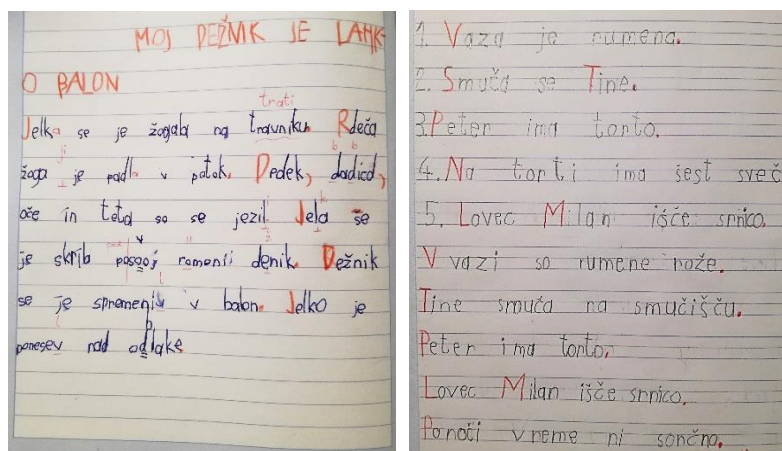 MOJ DEŽNIK JE LAHK-
O BALON
trati
Jelka se je žogala na travniku. Rdeča
žoga je padla v potok. Dedek,
oče in teta so se jezil. Jela še
je skrib ramenii denik. Dežnik
se je spremeniv v balon. Jelko je
ponesev nad odlake
1. Vaza je rumena.
2. Smuča se Tine.
3. Peter ima torto.
4. Na torti ima šest sveč
5. Lovec Milan išče srnico.
V vazi so rumene rože.
Tine smuča na smučišču.
Peter ima torto.
Lovec Milan išče srnico.
Ponoči vreme ni sončno.